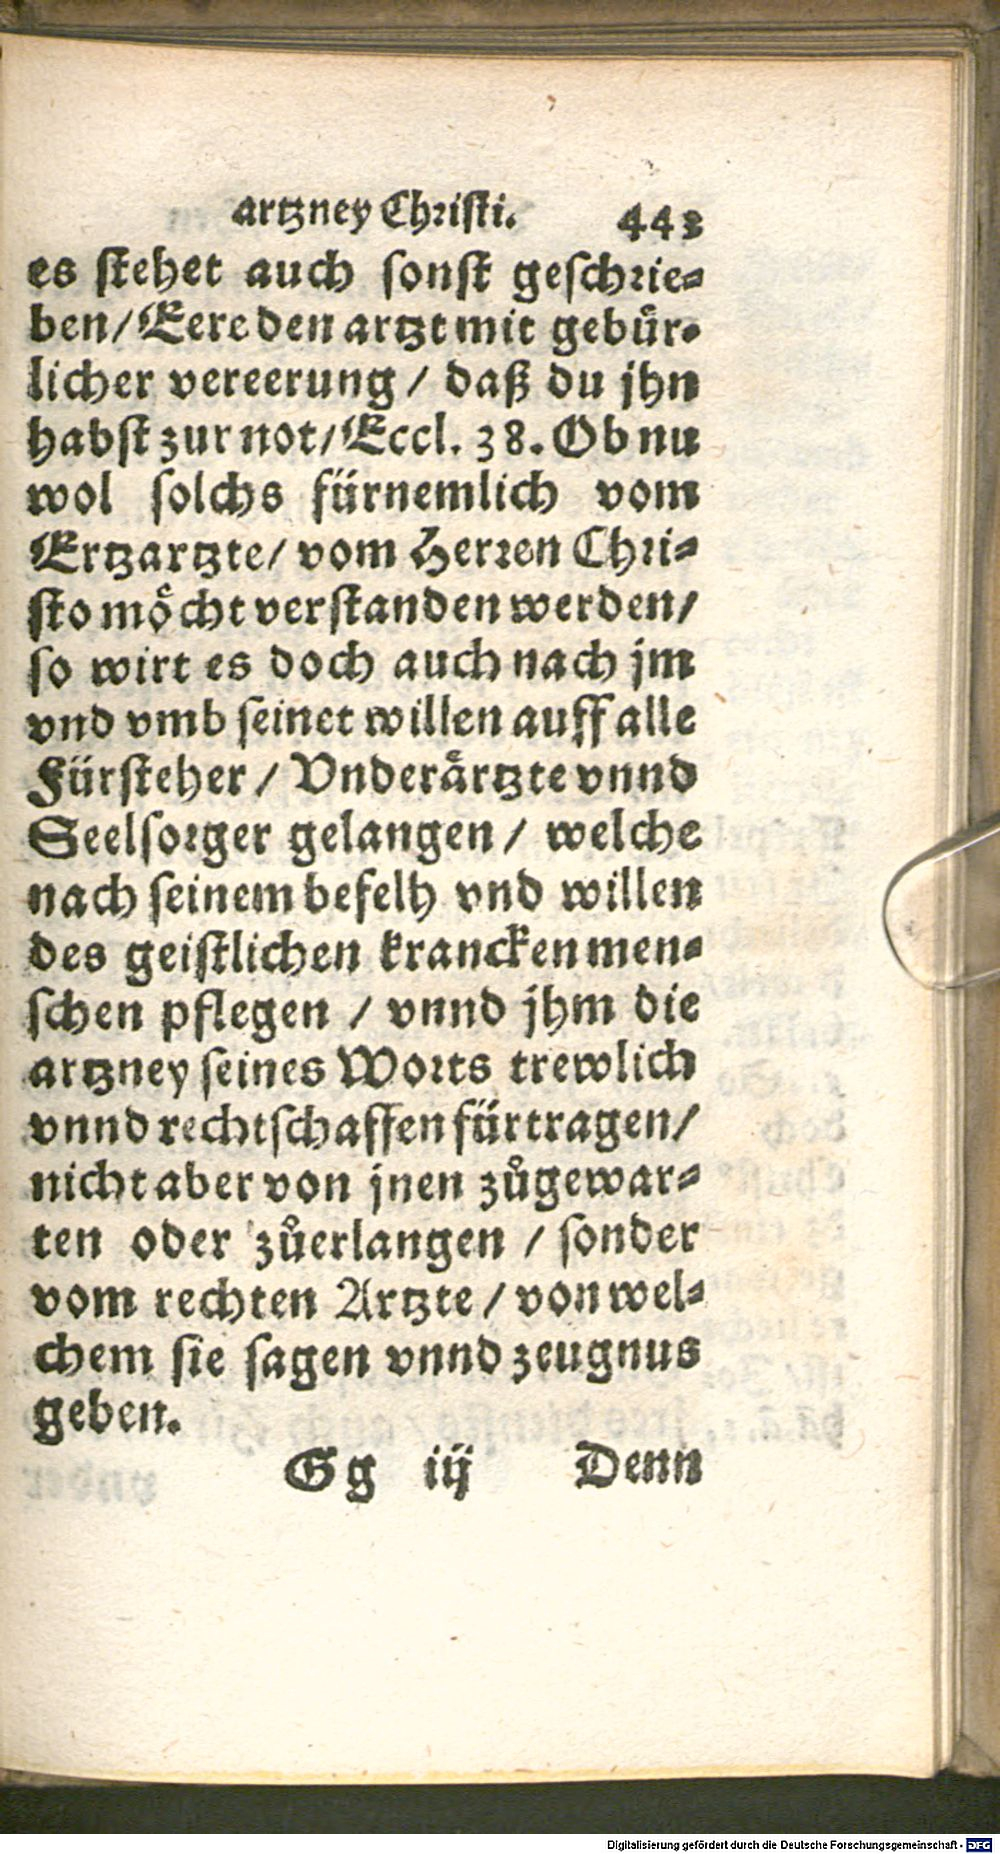 artzney Christi. 443
es stehet auch sonst geschrie⸗
ben/Eere den artzt mit gebuͤr⸗
licher vereerung / daß du jhn
habst zur not/Eccl. 38. Ob nu
wol solchs fürnemlich vom
Ertzartzte/ vom Herren Chri⸗
sto moͤcht verstanden werden/
so wirt es doch auch nach jm
vnd vmb seinet willen auff alle
Fürsteher / Vnderaͤrtzte vnnd
Seelsorger gelangen / welche
nach seinem befelh vnd willen
des geistlichen krancken men⸗
schen pflegen / vnnd jhm die
artzney seines Worts trewlich
vnnd rechtschaffen fürtragen/
nicht aber von jnen zůgewar⸗
ten oder zůerlangen / sonder
vom rechten Artzte / von wel⸗
chem sie sagen vnnd zeugnus
geben.
Gg iij Denn
Digitalisierung gefördert durch die Deutsche Forschungsgemeinschaft - DFG